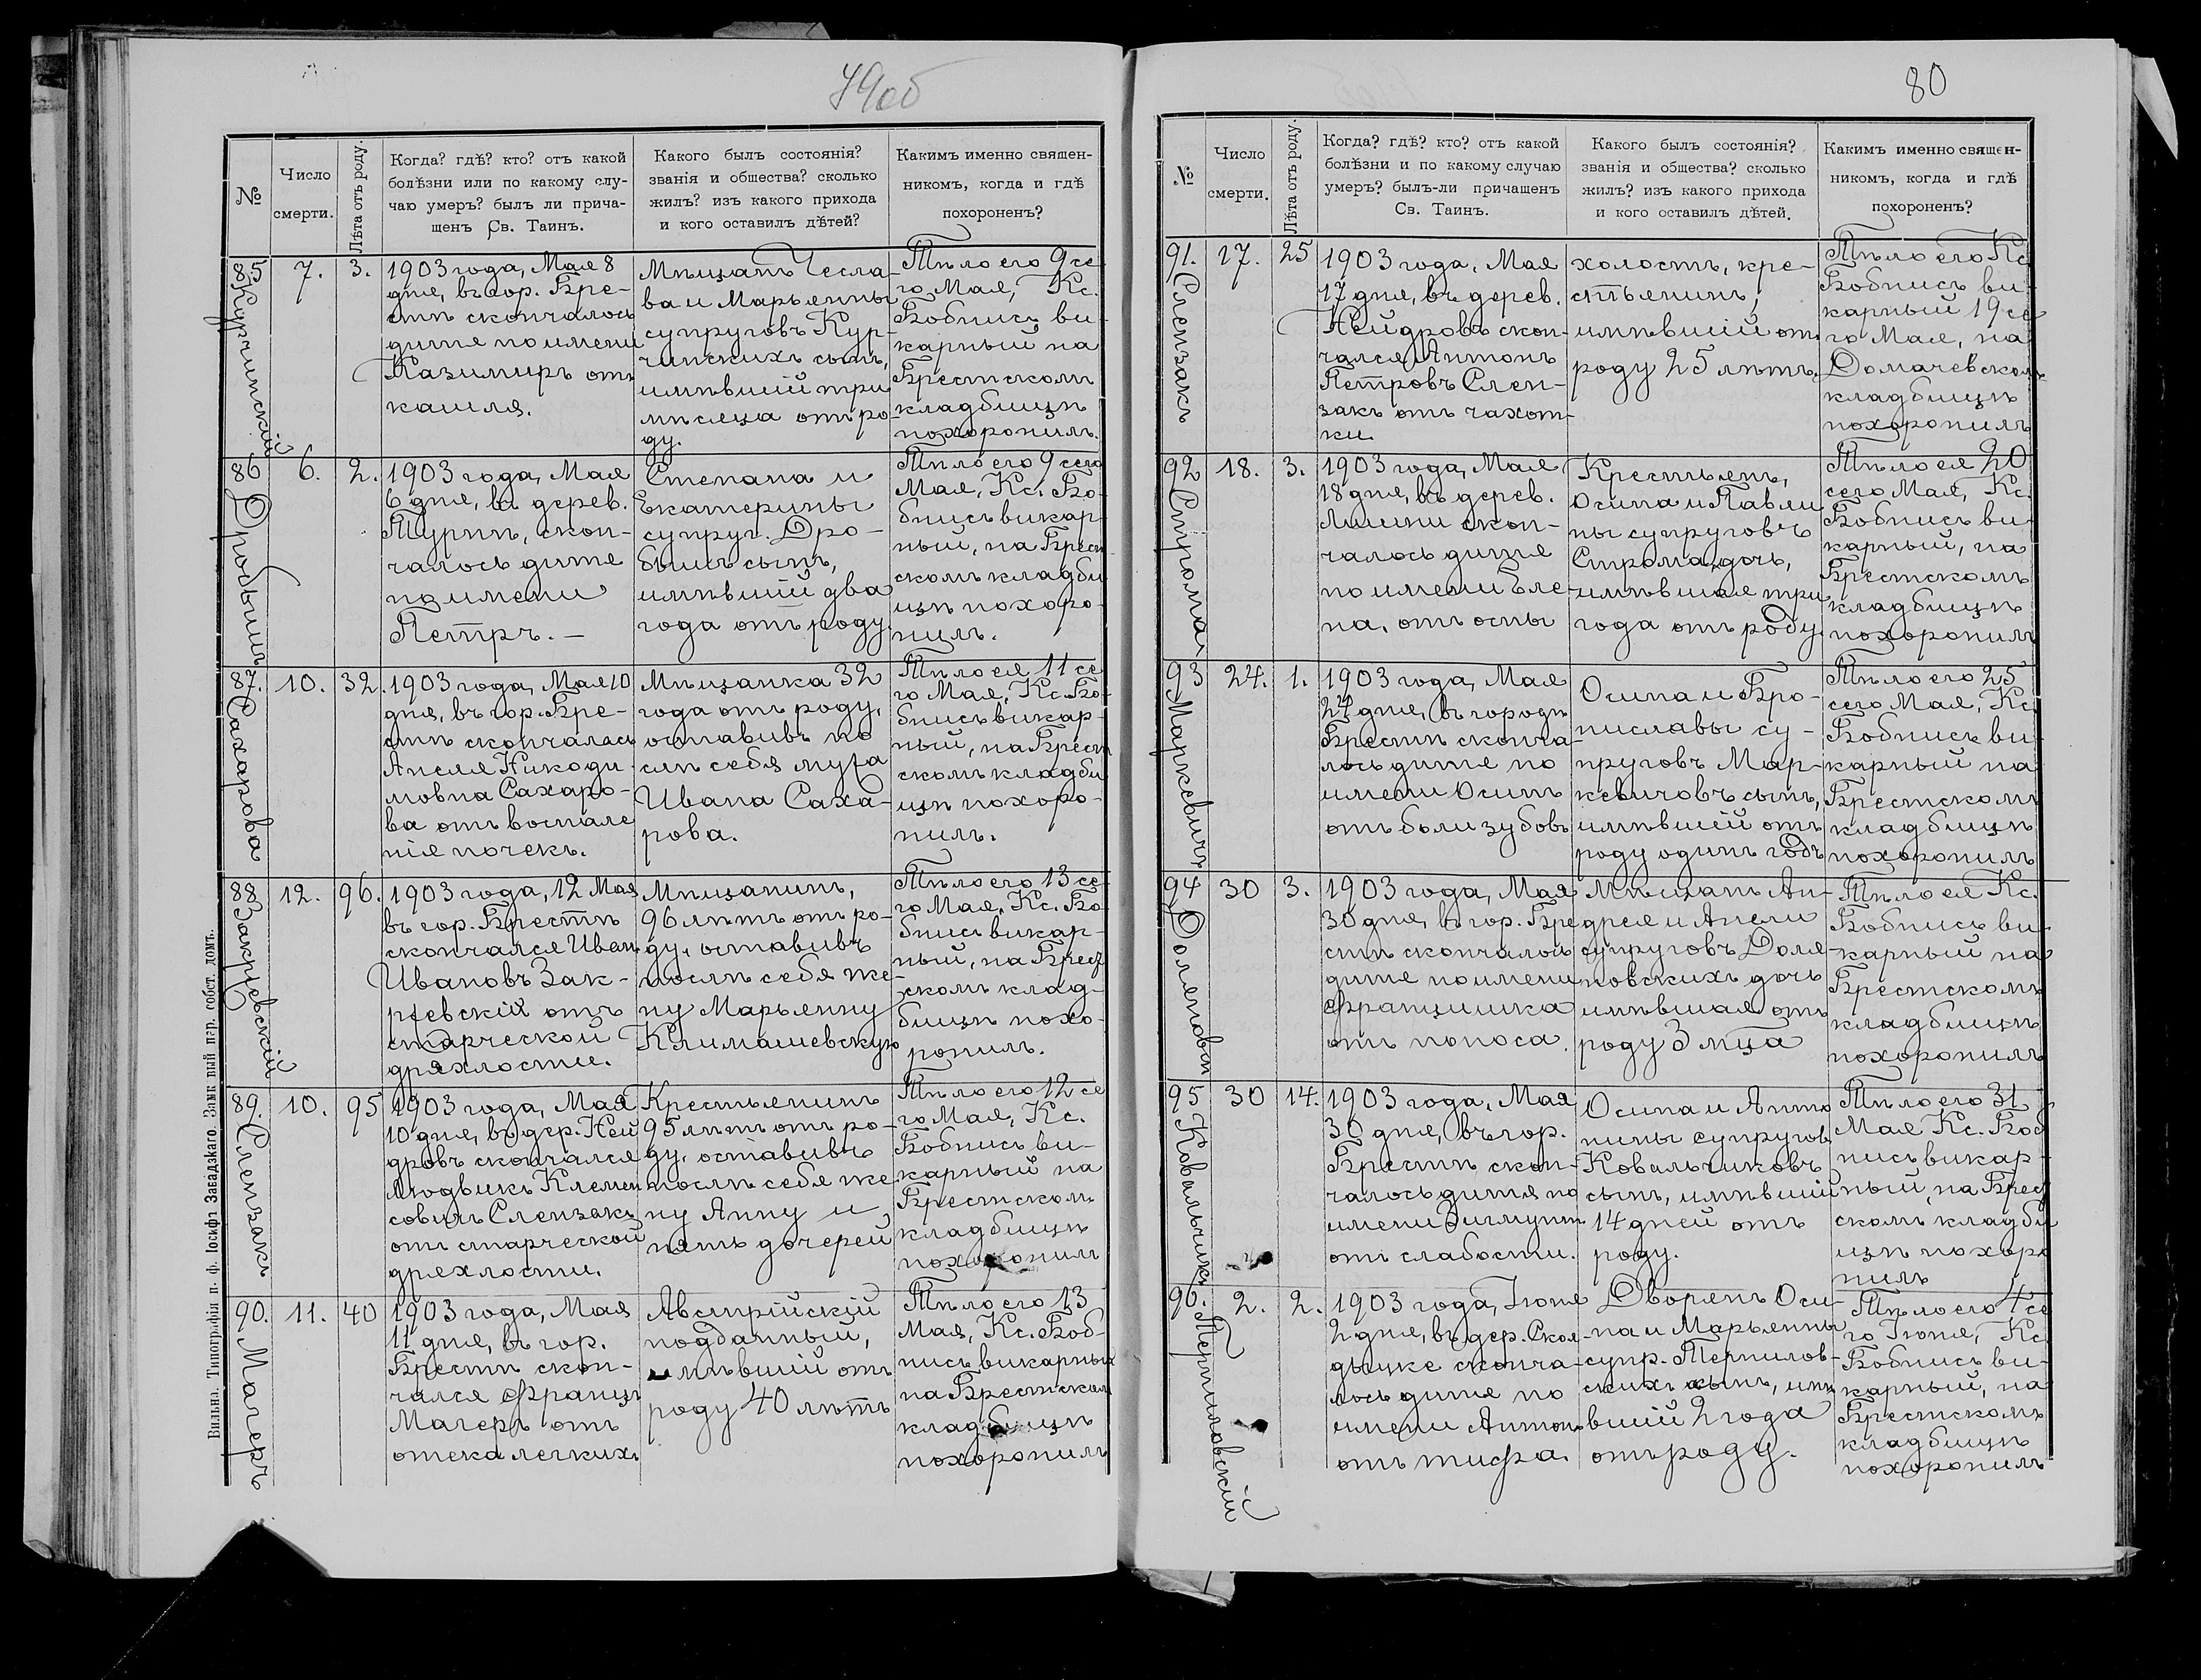 79об
№
Число
смерти.
Лѣта отъ роду.
Когда? гдѣ? кто? отъ какой
болѣзни или по какому слу-
чаю умеръ? былъ ли прича-
щенъ Св. Таинъ.
Какого былъ состоянія?
званія и общества? сколько
жилъ? изъ какого прихода
и кого оставилъ дѣтей?
Какимъ именно священ-
никомъ, когда и гдѣ
похороненъ?
85
Курчинскій
7.
3.
1903 года, Мая 8
дня, въ гор. Бре-
стѣ скончалось
дитя по имени
Казимиръ отъ
кашля.
Мѣщанъ Чесла-
ва и Марьянны
супруговъ Кур-
чинскихъ сынъ,
имѣвшій три
мѣсяца отъ ро-
ду.
Тѣло его 9 се-
го Мая, Кс.
Бобнисъ ви-
карный на
Брестскомъ
кладбищѣ
похоронилъ.
86
Дробышъ
6.
2.
1903 года, Мая
6 дня, въ дерев.
Турнѣ, скон-
чалось дитя
по имени
Петръ. –
Степана и
Екатерины
супруг. Дро-
бышъ сынъ,
имѣвшій два
года отъ роду.
Тѣло его 9 сего
Мая, Кс. Бо-
бнисъ викар-
ный, на Брест
скомъ кладби
щѣ похоро-
нилъ.
87.
Сахарова
10.
32.
1903 года, Мая 10
дня, въ гор. Бре-
стѣ скончалась
Анеля Никоди-
мовна Сахаро-
ва отъ воспале
нія почекъ.
Мѣщанка 32
года отъ роду,
оставивъ по
слѣ себя мужа
Ивана Саха-
рова.
Тѣло ея 11 се
го Мая, Кс. Бо-
бнисъ викар-
ный, на Брест
скомъ кладби
щѣ похоро-
нилъ.
88
Закржевскій
12.
96.
1903 года, 12 Мая
въ гор. Брестѣ
скончался Иванъ
Ивановъ Зак-
ржевскій отъ
старческой
дряхлости.
Мѣщанинъ,
96 лѣтъ отъ ро-
ду, оставивъ
послѣ себя же-
ну Марьянну
Климашевскую
Тѣло его 13 се-
го Мая, Кс. Бо
бнисъ викар-
ный, на Брест
скомъ клад-
бищѣ похо-
ронилъ.
89.
Слензакъ
10.
95
1903 года, Мая
10 дня, въ дер. Ней
дровъ скончался
Людвикъ Клемен
совичъ Слензакъ
отъ старческой
дряхлости.
Крестьянинъ
95 лѣтъ отъ ро-
ду, оставивъ
послѣ себя же
ну Анну и
пять дочерей
Тѣло его 12 се
го Мая, Кс.
Бобнисъ ви-
карный на
Брестскомъ
кладбищѣ
похоронилъ
90.
Магеръ
11.
40
1903 года, Мая
11 дня, въ гор.
Брестѣ скон-
чался Францъ
Магеръ отъ
отека легкихъ
Австрійскій
подданный,
имѣвшій отъ
роду 40 лѣтъ
Тѣло его 13
Мая, Кс. Боб-
нисъ викарный
на Брестскомъ
кладбищѣ
похоронилъ
Вильна. Типографія п. ф. Іосифъ Завадзкаго. Замк вый пер. собст. домъ.
80
№
Число
смерти.
Лѣта отъ роду.
Когда? гдѣ? кто? отъ какой
болѣзни и по какому случаю
умеръ? былъ-ли причащенъ
Св. Таинъ.
Какого былъ состоянія?
званія и общества? сколько
жилъ? изъ какого прихода
и кого оставилъ дѣтей.
Какимъ именно священ-
никомъ, когда и гдѣ
похороненъ?
91.
Слензакъ
17.
25
1903 года, Мая
17 дня, въ дерев.
Нейдровъ скон-
чался Антонъ
Петровъ Слен-
закъ отъ чахот-
ки
холостъ, кре-
стьянинъ,
имѣвшій отъ
роду 25 лѣтъ.
Тѣло его Кс
Бобнисъ ви-
карный 19 се
го Мая, на
Домачевскомъ
кладбищѣ
похоронилъ
92
Строма
18.
3.
1903 года, Мая
18 дня, въ дерев.
скон-
чалось дитя
по имени Еле-
на, отъ оспы
Крестьянъ,
Осипа и Павли
ны супруговъ
Строма дочь,
имѣвшая три
года отъ роду.
Тѣло ея 20
сего Мая, Кс.
Бобнисъ ви-
карный, на
Брестскомъ
кладбищѣ
похоронилъ
93
Маркевичъ
24.
1.
1903 года, Мая
24 дня, въ городѣ
Брестѣ сконча-
лось дитя по
имени Осипъ
отъ боли зубовъ
Осипа и Бро-
ниславы су-
пруговъ Мар-
кевичовъ сынъ,
имѣвшій отъ
роду одинъ годъ
Тѣло его 25
сего Мая, Кс.
Бобнисъ ви-
карный на
Брестскомъ
кладбищѣ
похоронилъ
94
30
3.
1903 года, Мая
30 дня, въ гор. Бре
стѣ скончалось
дитя по имени
Францишка
отъ поноса.
Мѣщанъ Ан-
дрея и Анели
супруговъ Доля
новскихъ дочь
имѣвшая отъ
роду 3 мца
Тѣло ея Кс.
Бобнисъ ви-
карный на
Брестскомъ
кладбищѣ
похоронилъ
95
Ковальчикъ
30
14.
1903 года, Мая
30 дня, въ гор.
Брестѣ скон-
чалось дитя по
имени Зигмунтъ
отъ слабости.
Осипа и Анто
нины супругов
Ковальчиковъ
сынъ, имѣвшій
14 дней отъ
роду.
Тѣло его 31
Мая Кс. Боб
нисъ викар-
ный, на Брест
скомъ кладби
щѣ похоро
нилъ
96.
Терпиловскій
2.
2.
1903 года, Іюня
2 дня, въ дер. Скоя-
дычке сконча-
лось дитя по
имени Антонъ
отъ тифа.
Дворянъ Оси-
па и Марьянны
супр. Терпилов-
скихъ сынъ, имѣ
вшій 2 года
отъ роду.
Тѣло его 4 се
го Іюня, Кс.
Бобнисъ ви-
карный, на
Брестскомъ
кладбищѣ
похоронилъ